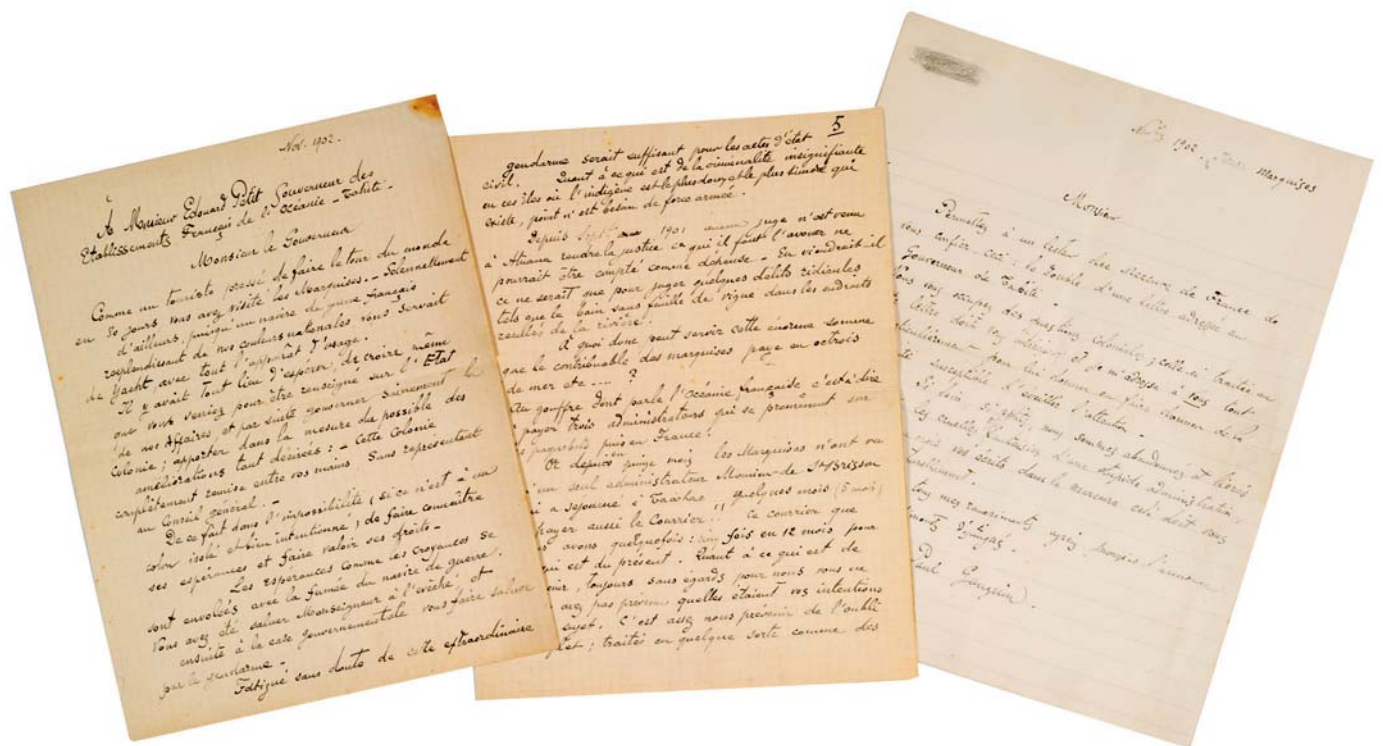 Nov. 1902.
À Monsieur Edouard Petit Gouverneur des
Etablissements Français de l'Océanie - Tahiti -
Monsieur le Gouverneur
Comme un touriste pressé de faire le tour du monde
en 80 jours vous avez visité les Marquises. - Solennellement
d'ailleurs, puisqu'un navire de guerre français
resplendissant de nos couleurs nationales vous servait
de Yacht avec tout l'apparât d'usage.
Il y avait tout lieu d'espérer, de croire même
que vous veniez pour être renseigné sur l'Etat
de nos Affaires, et par suite gouverner sainement la
Colonie ; apporter dans la mesure du possible des
améliorations tant désirées : - Cette Colonie
complètement remise entre vos mains. Sans représentant
au Conseil général. -
De ce fait dans l'impossibilité (si ce n'est à un
colon isolé et bien intentionné) de faire connaître
ses espérances et faire valoir ses droits -
Les espérances comme les croyances se
sont envolées avec la fumée du navire de guerre.
Vous avez été saluer Monseigneur à l'évêché, et
ensuite à la case gouvernementale vous faire saluer
par le gendarme -
Fatigué sans doute de cette extraordinaire
5
gendarme serait suffisant pour les actes d'état
civil. Quant à ce qui est de la criminalité insignifiante
en ces îles où l'indigène est le plus doux, et le plus timoré qui
existe, point n'est besoin de force armée.
Depuis 1901 aucun juge n'est venu
à Atuana rendre la justice ce qui il faut l'avouer ne
pourrait être compté comme dépense - En viendrait-il
ce ne serait que pour juger quelques délits ridicules
tels que le bain sans feuille de vigne dans les endroits
reculés de la rivière.
À quoi donc peut servir cette énorme somme
que le contribuable des marquises paye en octrois
de mer etc .... ?
Au gouffre dont parle l'Océanie française c'est à dire
payer trois administrateurs qui se promènent sur
paquebots puis en France.
Or depuis quinze mois les Marquises n'ont vu
un seul administrateur Monsieur de St Brisson
a séjourné à quelques mois (5 mois)
payer aussi le Courrier !! Ce courrier que
avons quelquefois : cinq fois en 12 mois pour
qui est du présent. Quant à ce qui est de
toujours sans égards pour nous vous ne
avez pas prévenu quelles étaient vos intentions
sujet. C'est assez nous prévenir de l'oubli
; traités en quelque sorte comme des
1902 - Marquises
Monsieur
Permettez à un lecteur du Mercure de France de
vous confier ceci : le double d'une lettre adressée au
Gouverneur de Tahiti -
Vous vous occupez des questions Coloniales ; celle-ci traitée en
lettre doit vous intéresser et je m'adresse à vous tout
particulièrement pour lui donner ou faire donner de la
susceptible d'éveiller l'attention -
Si loin, si petits, nous sommes abandonnés et livrés
les cruelles fantaisies d'une stupide administration,
vos écrits dans le mercure cela doit vous
tous mes remerciements
Paul Gauguin.